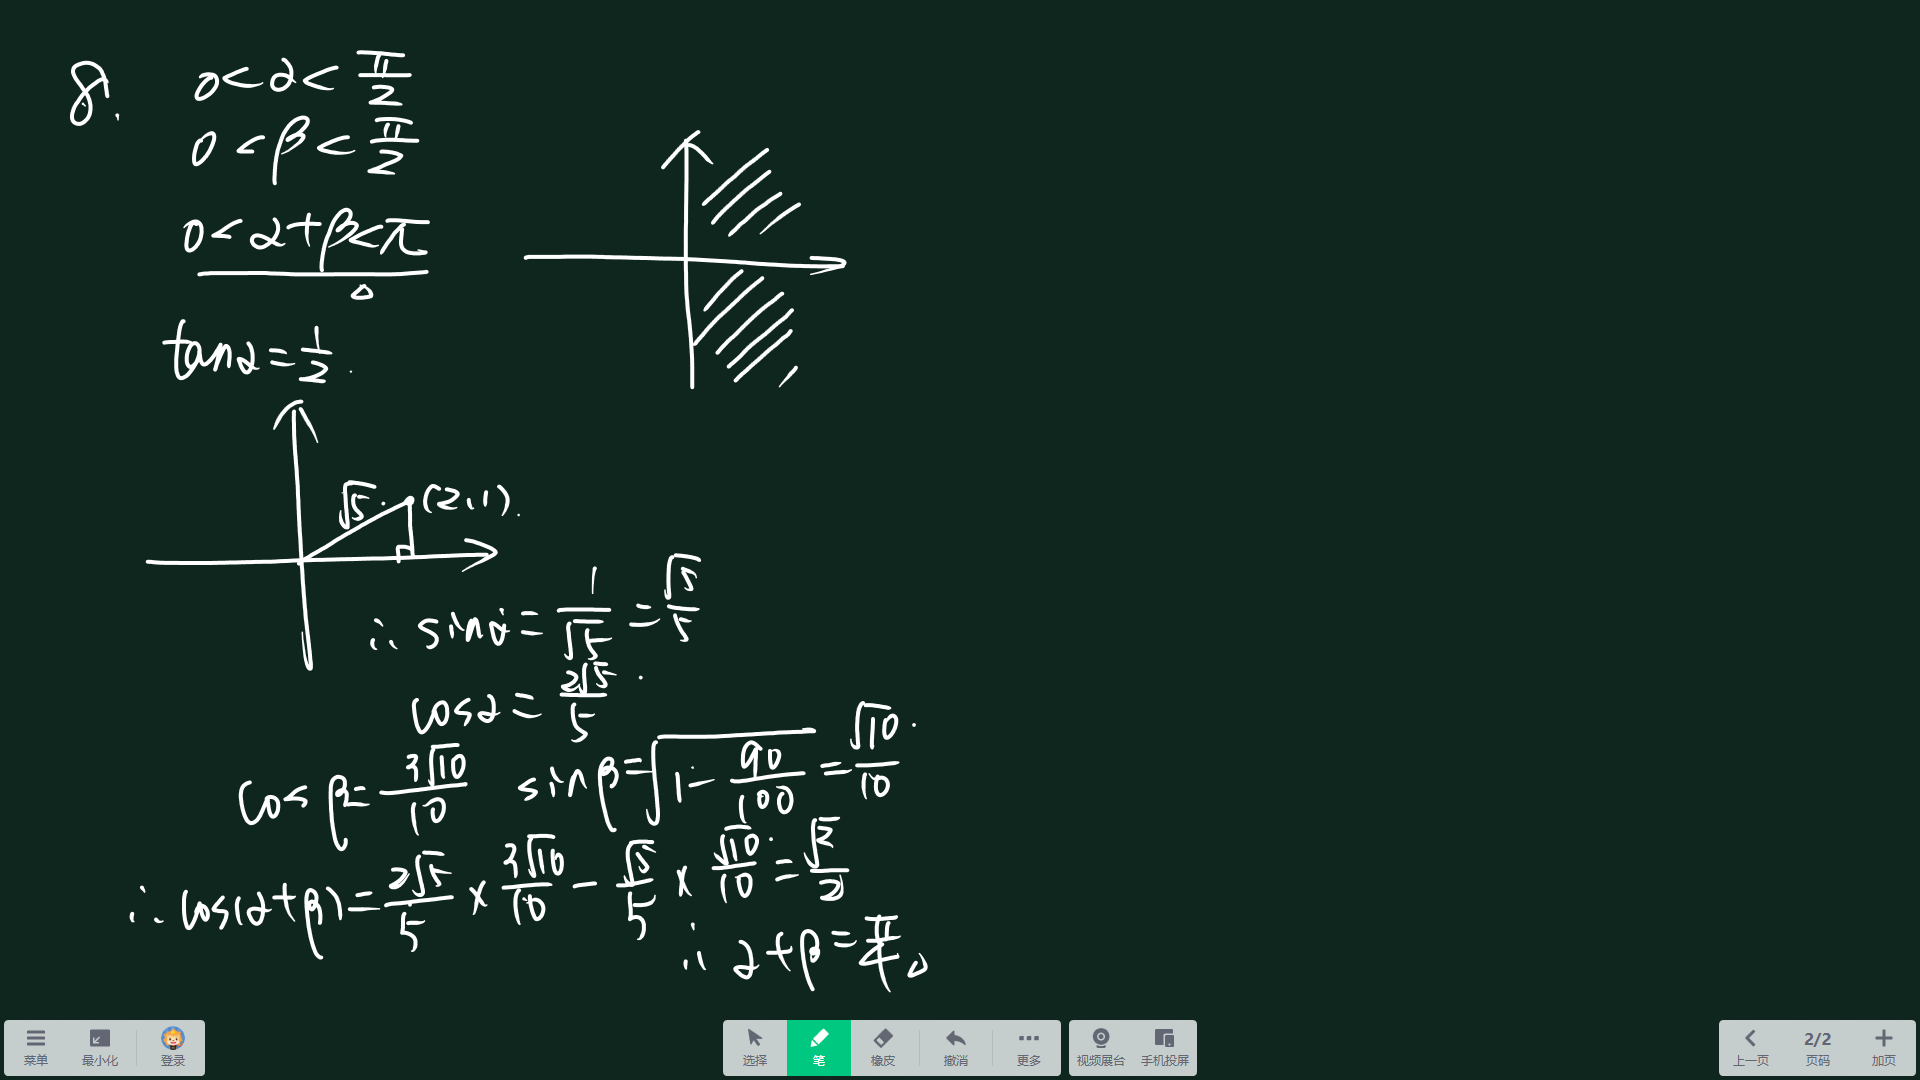 8. 0<α<π/2
0<β<π/2
0<α+β<π
tanα=1/2.
√5 (2,1).
∴ sinα=1/√5=√5/5
cosα=2√5/5.
cosβ=3√10/10 sinβ=√(1-90/100)=√10/10.
∴ cos(α+β)=2√5/5×3√10/10-√5/5×√10/10=√2/2
∴ α+β=π/4
菜单 最小化 登录 选择 笔 橡皮 撤消 更多 视频展台 手机投屏 上一页 2/2 页码 加页